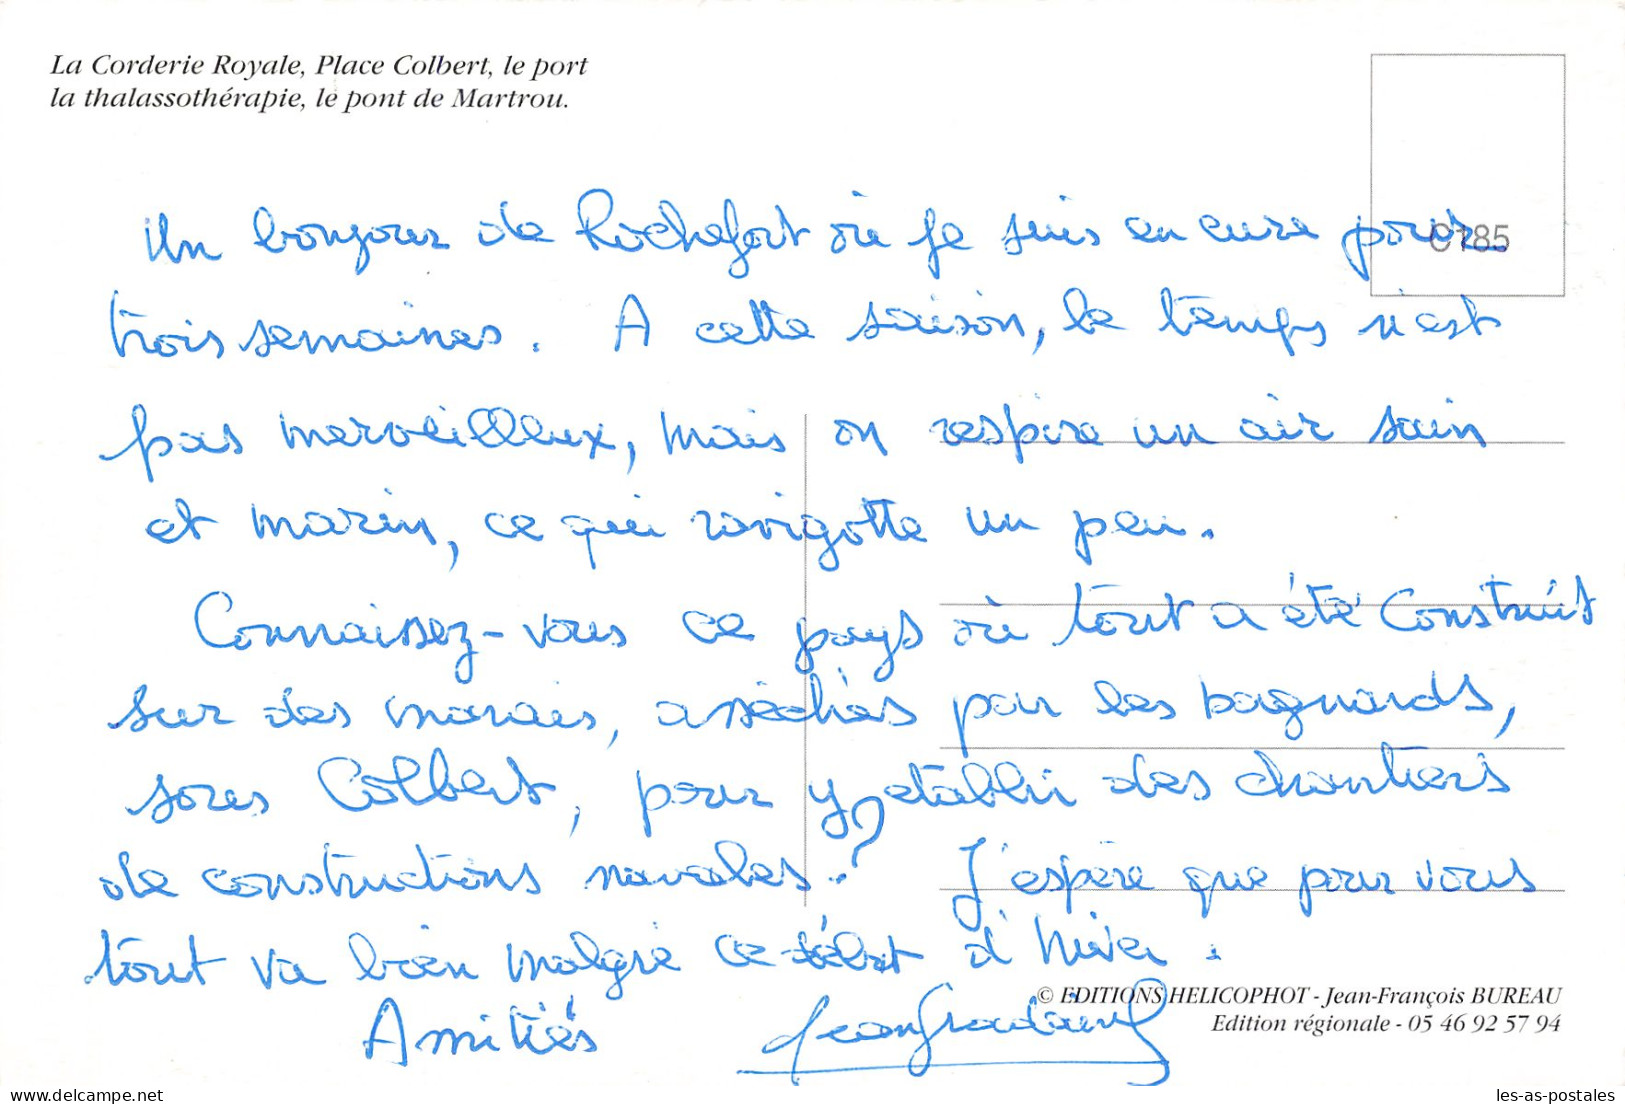 La Corderie Royale, Place Colbert, le port
la thalassothérapie, le pont de Martrou.
C185
Un bonjour de Rochefort où je suis en cure pour
trois semaines. A cette saison, le temps n'est
pas merveilleux, mais on respire un air sain
et marin, ce qui ravigotte un peu.
Connaissez-vous ce pays où tout a été construit
sur des marais, asséchés par les bagnards,
sous Colbert, pour y établir des chantiers
de constructions navales? J'espère que pour vous
tout va bien malgré ce début d'hiver.
Amitiés
© EDITIONS HELICOPHOT - Jean-François BUREAU
Edition régionale - 05 46 92 57 94
www.delcampe.net
les-as-postales